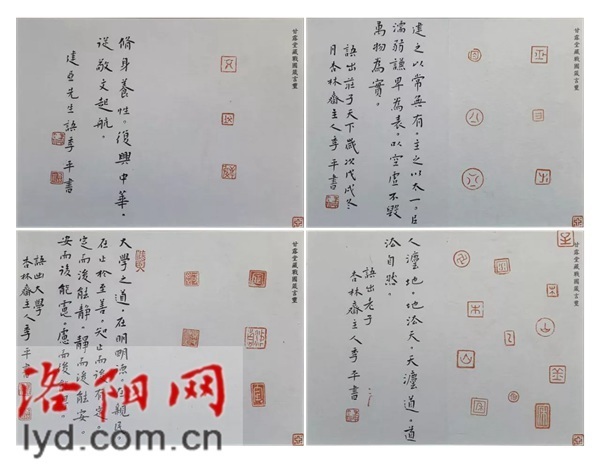 甘露堂藏戰國箴言璽
脩身養性。復興中華，
從敬文起航。
建亞先生語 李平書
甘露堂藏戰國箴言璽
建之以常無有，主之以太一。㠯
濡弱謙卑為表，以空虛不毀
萬物為實。
語出莊子天下歲次戊戌冬
月杏林齋主人李平書
甘露堂藏戰國箴言璽
大學之道，在明明德，在親民
在止於至善。知止而後有定，
定而後能靜，靜而後能安。
安而後能慮，慮而後能得。
語出大學
杏林齋主人李平書
甘露堂藏戰國箴言璽
人灋地，地法天，天灋道，道
法自然。
語出老子
杏林齋主人李平書
洛阳网
lyd.com.cn